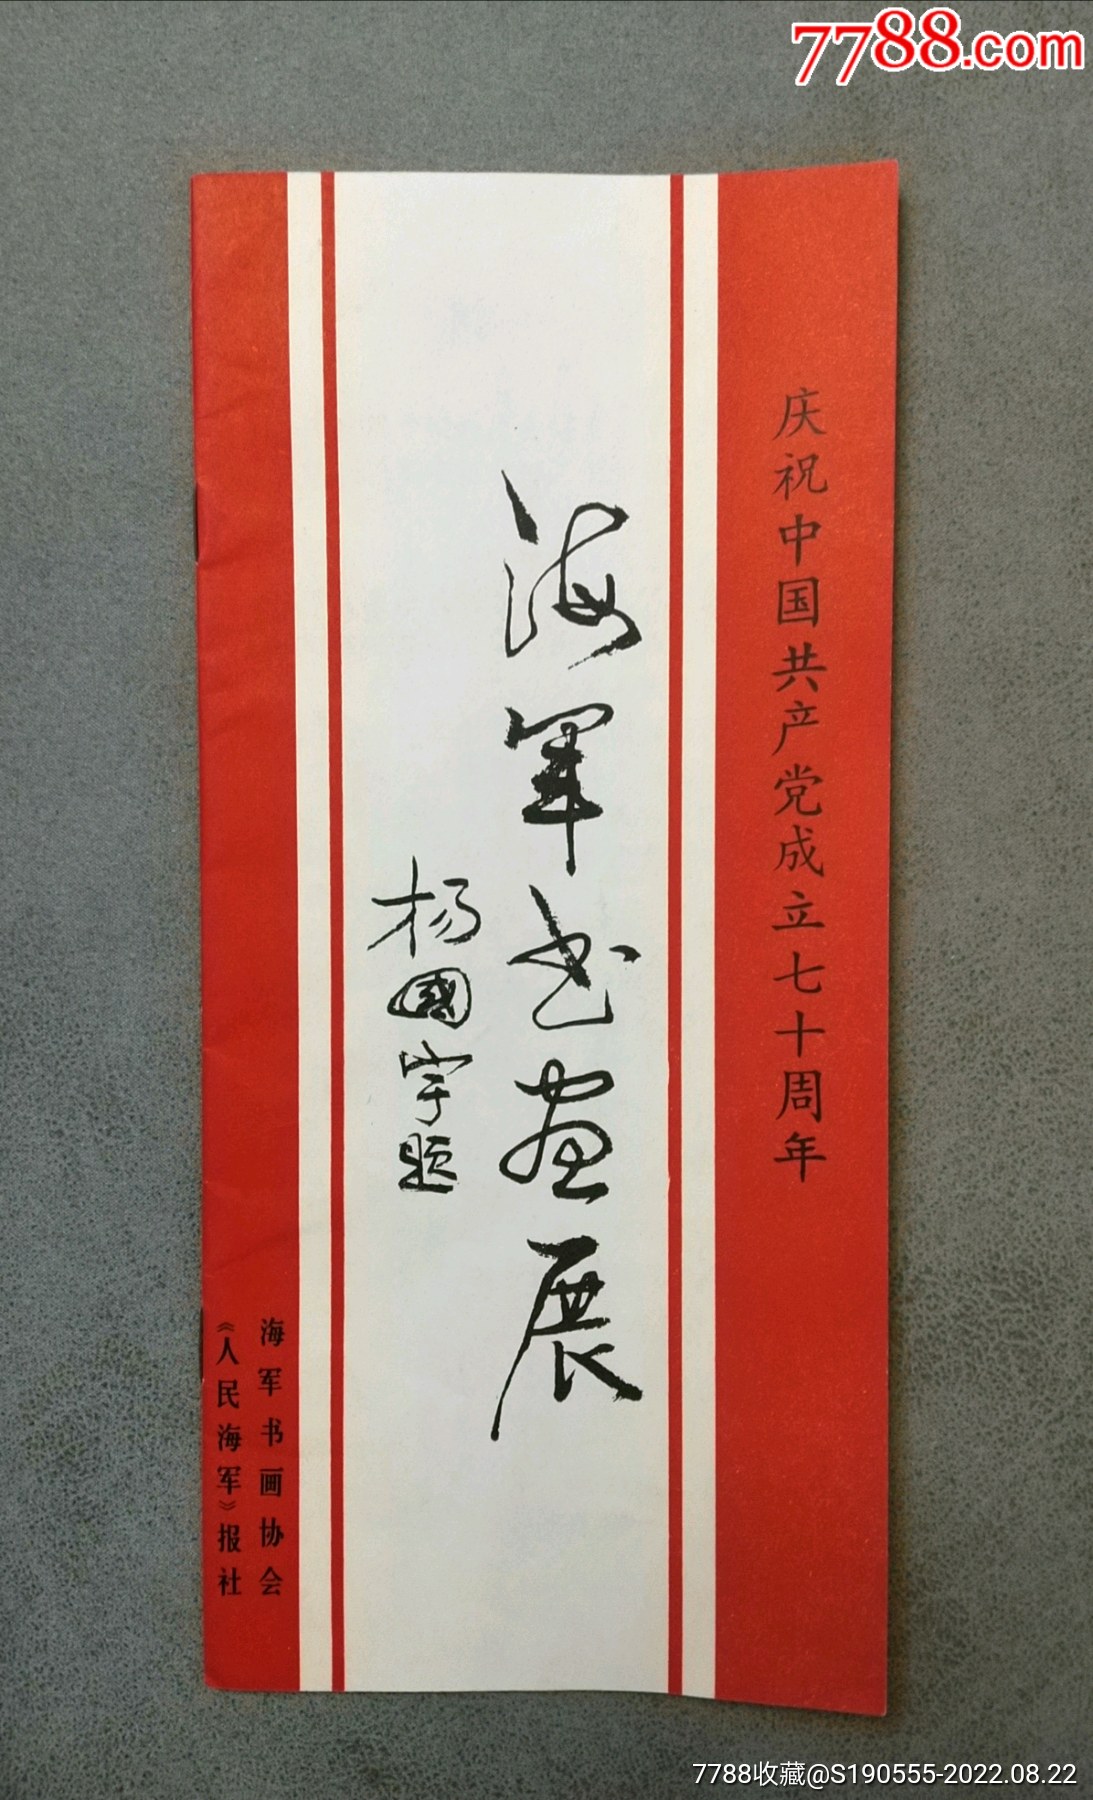 7788.com
庆祝中国共产党成立七十周年
海军书画展
杨國宇题
海军书画协会
《人民海军》报社
7788收藏@S190555-2022.08.22